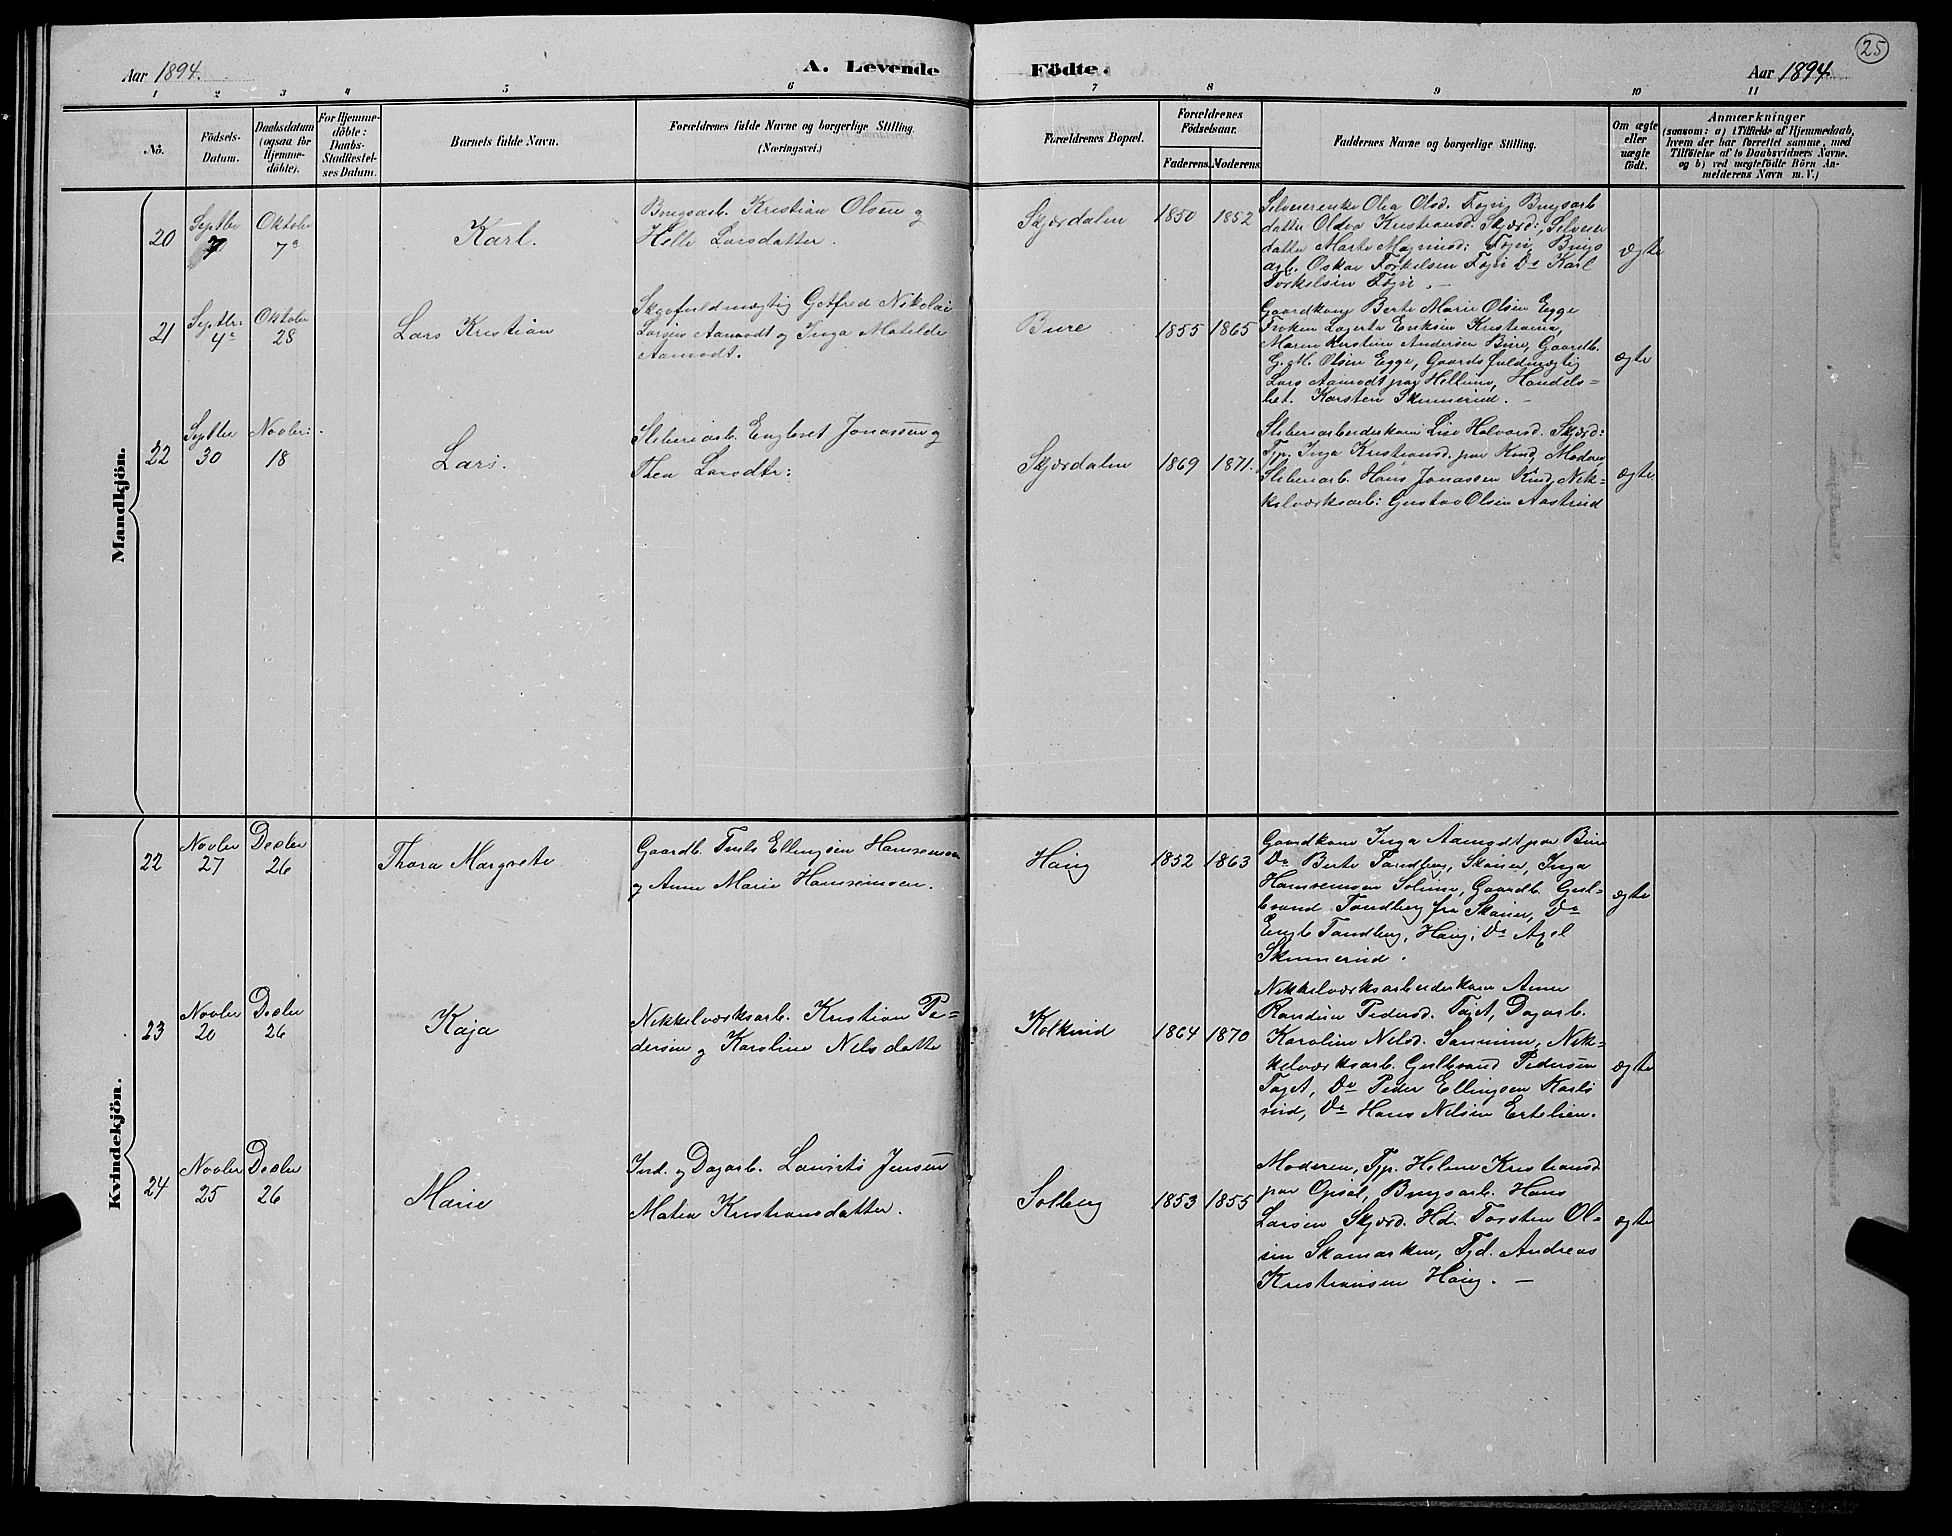 25
Aar 1894.
A. Levende Födte.
Aar 1894
1 2 3 4 5 6 7 8 9 10 11
No.
Födsels-
Datum.
Daabsdatum
(ogsaa for
Hjemme-
döbte).
For Hjemme-
döbte:
Daabs-
Stadfæstel-
ses Datum.
Barnets fulde Navn.
Forældrenes fulde Navne og borgerlige Stilling.
(Næringsvei.)
Forældrenes Bopæl.
Forældrenes
Födselsaar.
Faderens. Moderens.
Faddernes Navne og borgerlige Stilling.
Om ægte
eller
uægte
født.
Anmærkninger
(saasom: a) i Tilfælde af Hjemmedaab,
hvem der har forrettet samme, med
Tilföielse af to Daabsvidners Navne,
og b) ved uægtefödte Börn An-
melderens Navn m. V.)
Mandkjön.
20
Septbr
7
Oktober
7
Karl.
Brugsarb. Kristian Olsen og
Helle Larsdatter.
Skjærdalen
1850 1852
Olea Olsd.
datter Oldea Kristiansd. Skjærd:,
datter Marte
arb. Oskar Torkelsen Do Karl
Torkelsen
ægte
21
Septbr:
4
Oktober
28
Lars Kristian
Skovfuldmægtig Gotfred Nikolai
Larsen Aamodt og Inga Matilde
Aamodt.
Bure
1855 1865
Gaardkone Berte Marie Olsen Egge
Frøken Lagerta Eriksen Kristiania,
Maren Kirstine Andersen Bure, Gaardb.
G. M. Olsen Egge, Gaardsfuldmægtig
Lars Aamodt paa Hellum, Handels-
bet. Karsten Skinnerud. -
ægte
22
Septbr
30
Novbr:
18
Lars.
Sliberiarb. Engbret Jonassen og
Thea Larsdtr:
Skjærdalen
1869 1871.
Sliberiarbeiderkone Lise Halvorsd. Skjærd:
Tjp. Inga Kristiansd. paa Rud, Moderen
Sliberiarb. Hans Jonassen Rud, Nik-
kelværksarb: Gustav Olsen Aastrud
ægte
Kvindekjön.
22
Novbr
27
Decbr
26
Thora Margrete
Gaardb. Truls Ellingsen Hamremoen
og Anne Marie Hamremoen.
Haug
1852 1863
Gaardkone Inga Aamodt paa Bure
Do Berte Tandberg, Skoien, Inga
Hamremoen Solum, Gaardb. Gul-
brand Tandberg fra Skoien, Do
Engb. Tandberg, Haug, Do Axel
Skinnerud.
ægte
23
Novbr
20
Decbr
26
Kaja
Nikkelværksarb. Kristian Pe-
dersen og Karoline Nelsdatter
Kolkind
1864 1870
Nikkelværksarbeiderkone Anne
Randine Pedersd. Taget, Dagarb.
Karoline Nelsd. Nik-
kelværksarb. Gulbrand Pedersen
Taget, Do Peder Ellingsen Karls
rud, Do Hans Nelsen Ertelien.
ægte
24
Novbr
25
Decbr
26
Marie
Ind. og Dagarb. Laurits Jensen
Matea Kristiansdatter.
Solberg
1853 1855
Moderen, Tjp. Helene Kristiansd
paa Opsal, Brugsarb. Hans
Larsen Skjærd. Hd. Torsten Ol-
sen Skamarken, Tjd. Andreas
Kristiansen Haug. -
ægte